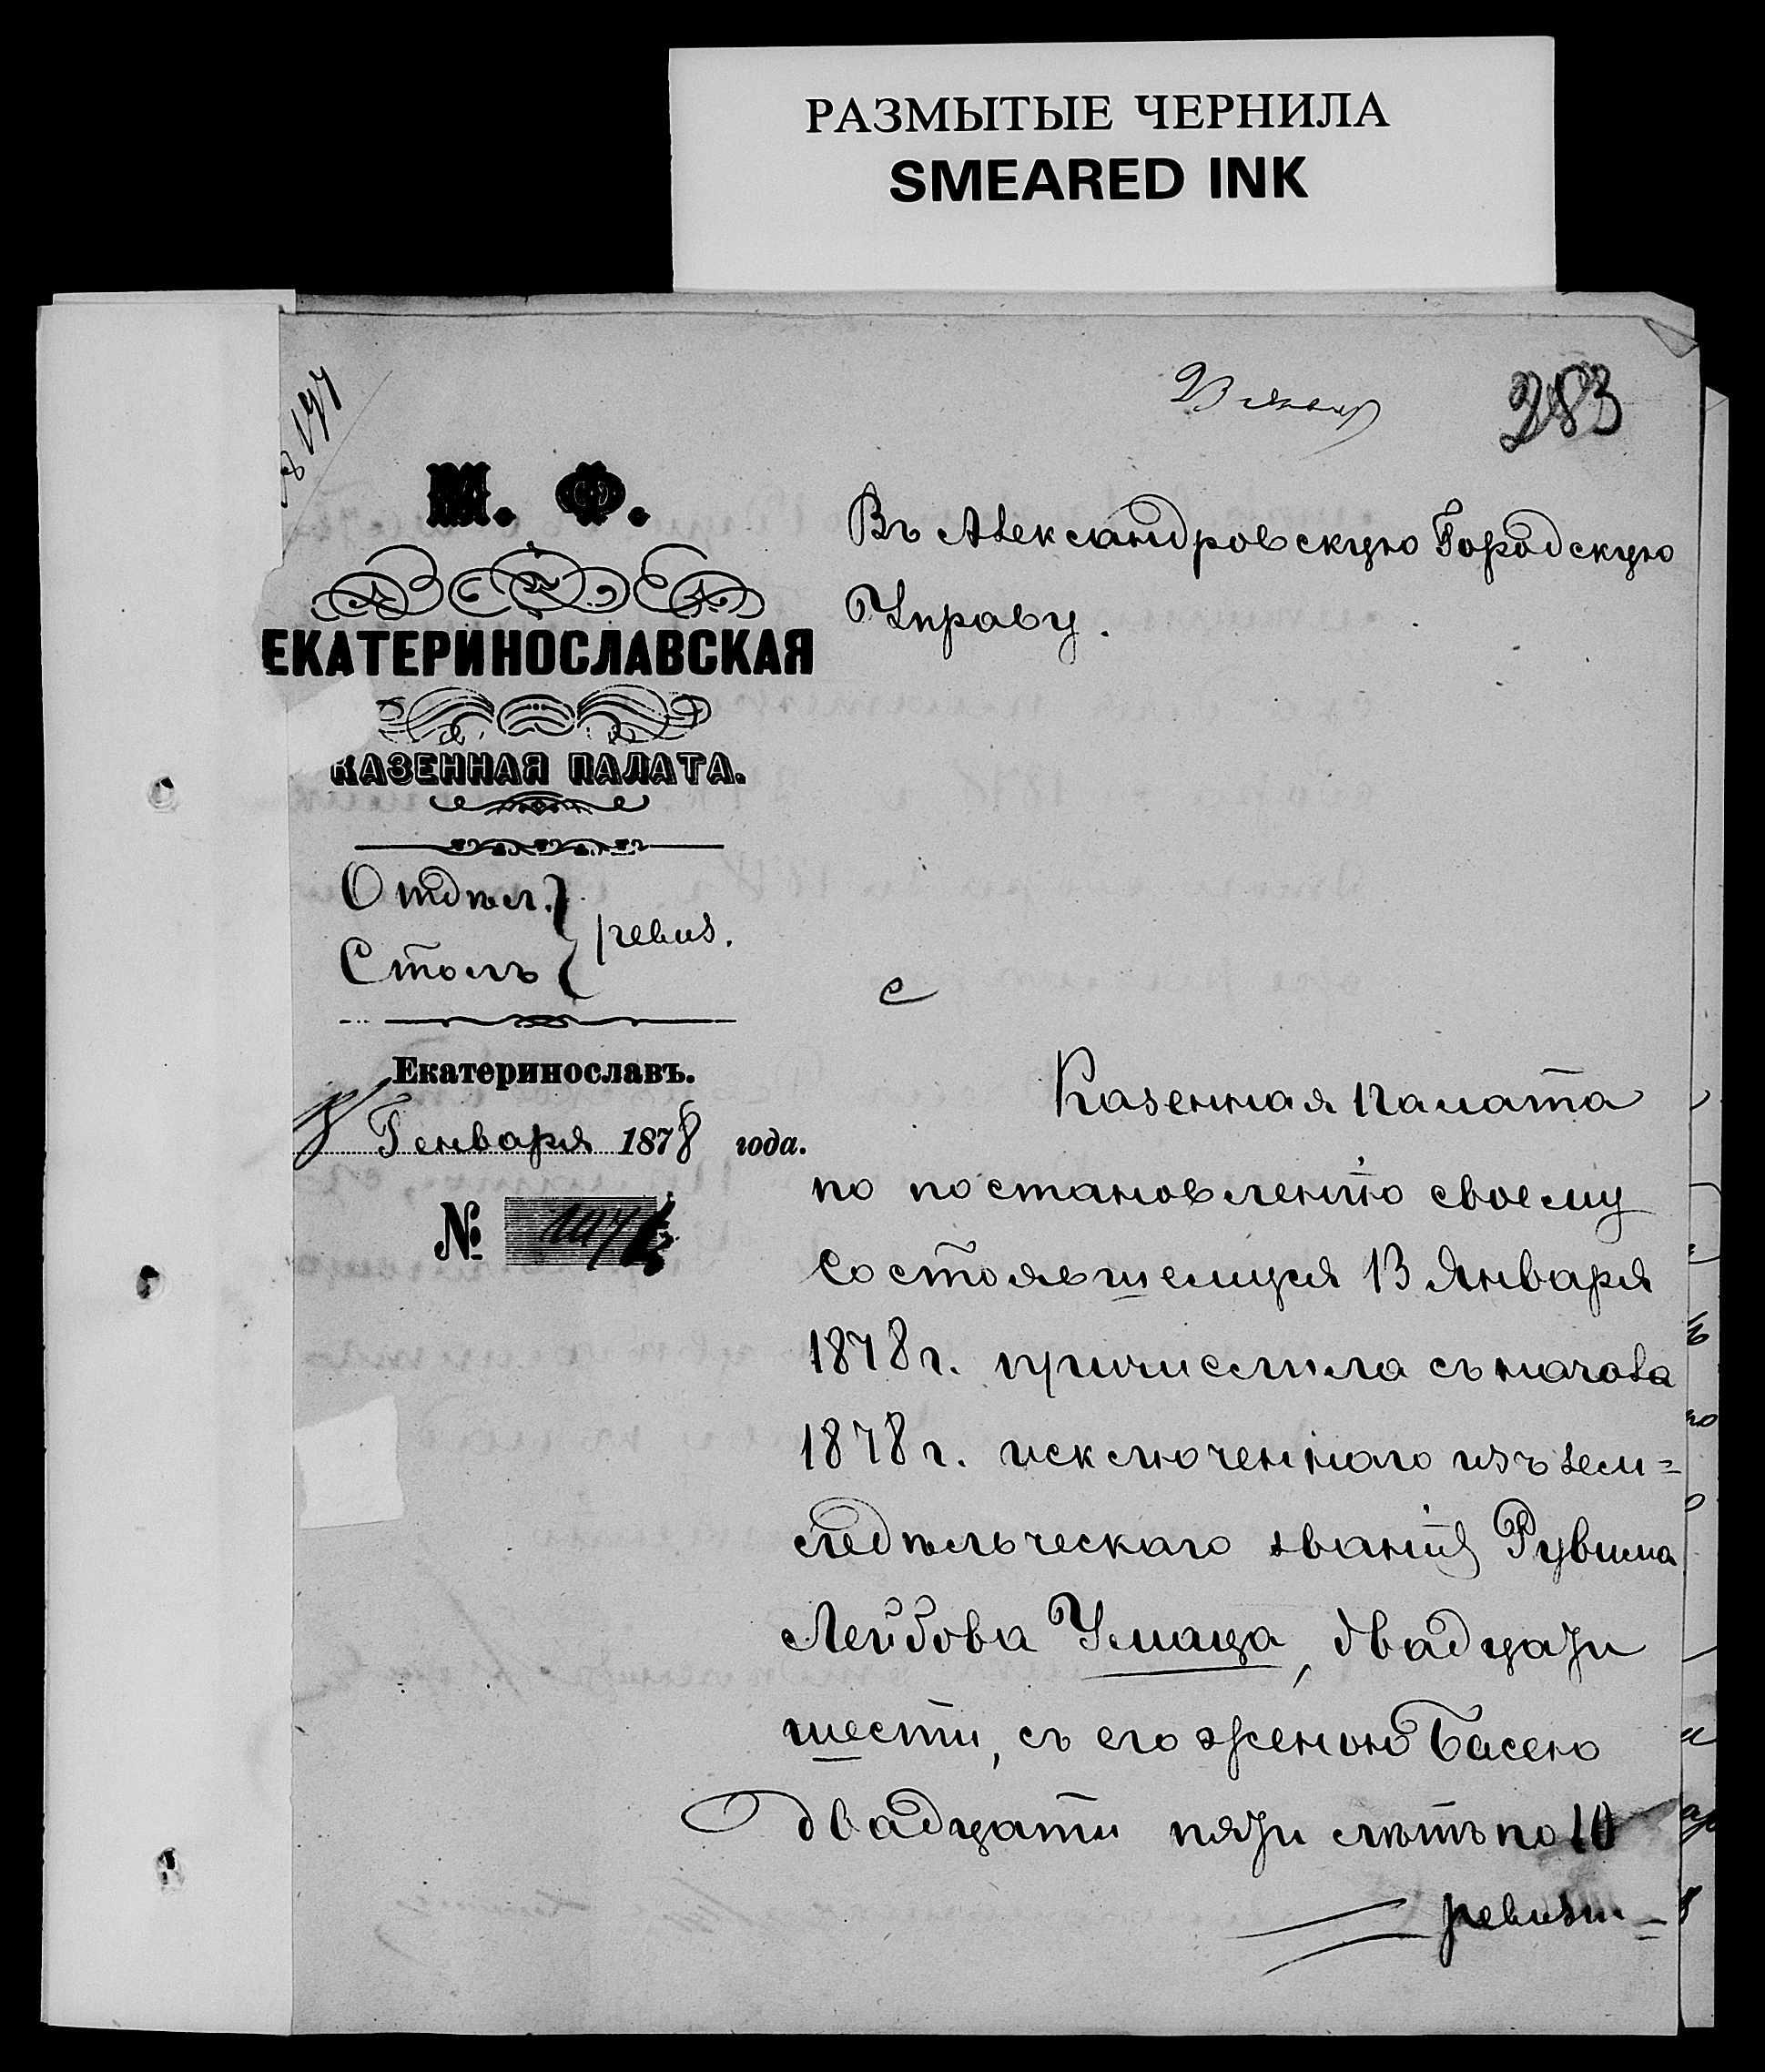 РАЗМЫТЫЕ ЧЕРНИЛА
SMEARED INK
283
М. Ф.
ЕКАТЕРИНОСЛАВСКАЯ
КАЗЕННАЯ ПАЛАТА.
Отдѣл.
Столъ
ревиз.
Екатеринославъ.
Генваря 1878 года.
№
Въ Александровскую Городскую
Управу.
Казенная палата
по постановленію своему
состоявшемуся 13 Января
1878 г. причислила съ начала
1878 г. исключеннаго изъ зем=
ледѣльческаго званія Рувима
Лейбова Умаца, двадцати
шести, съ его женою Басею
двадцати пяти лѣтъ по 10
ревизи-